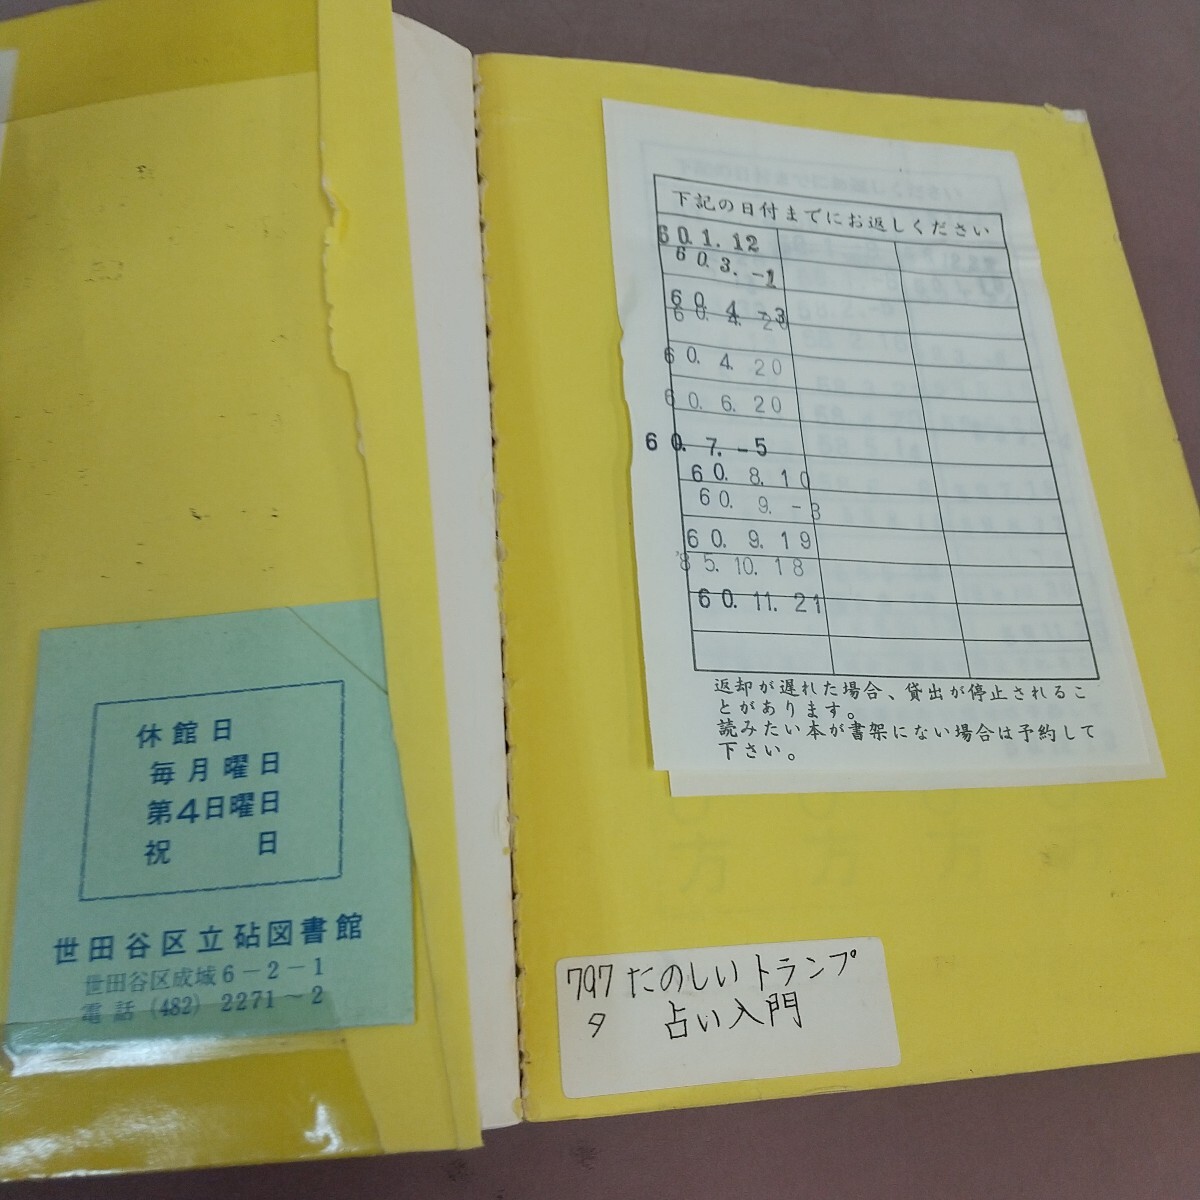 休館日
毎月曜日
第4日曜日
祝日
世田谷区立砧図書館
世田谷区成城6-2-1
電話 (482) 2271〜2
下記の日付までにお返しください
60.1.12
60.3.-1
60.4.-3
60.4.20
60.4.20
60.6.20
60.7.-5
60.8.10
60.9.-3
60.9.19
'85.10.18
60.11.21
返却が遅れた場合、貸出が停止されるこ
とがあります。
読みたい本が書架にない場合は予約して
下さい。
797 たのしいトランプ
タ 占い入門